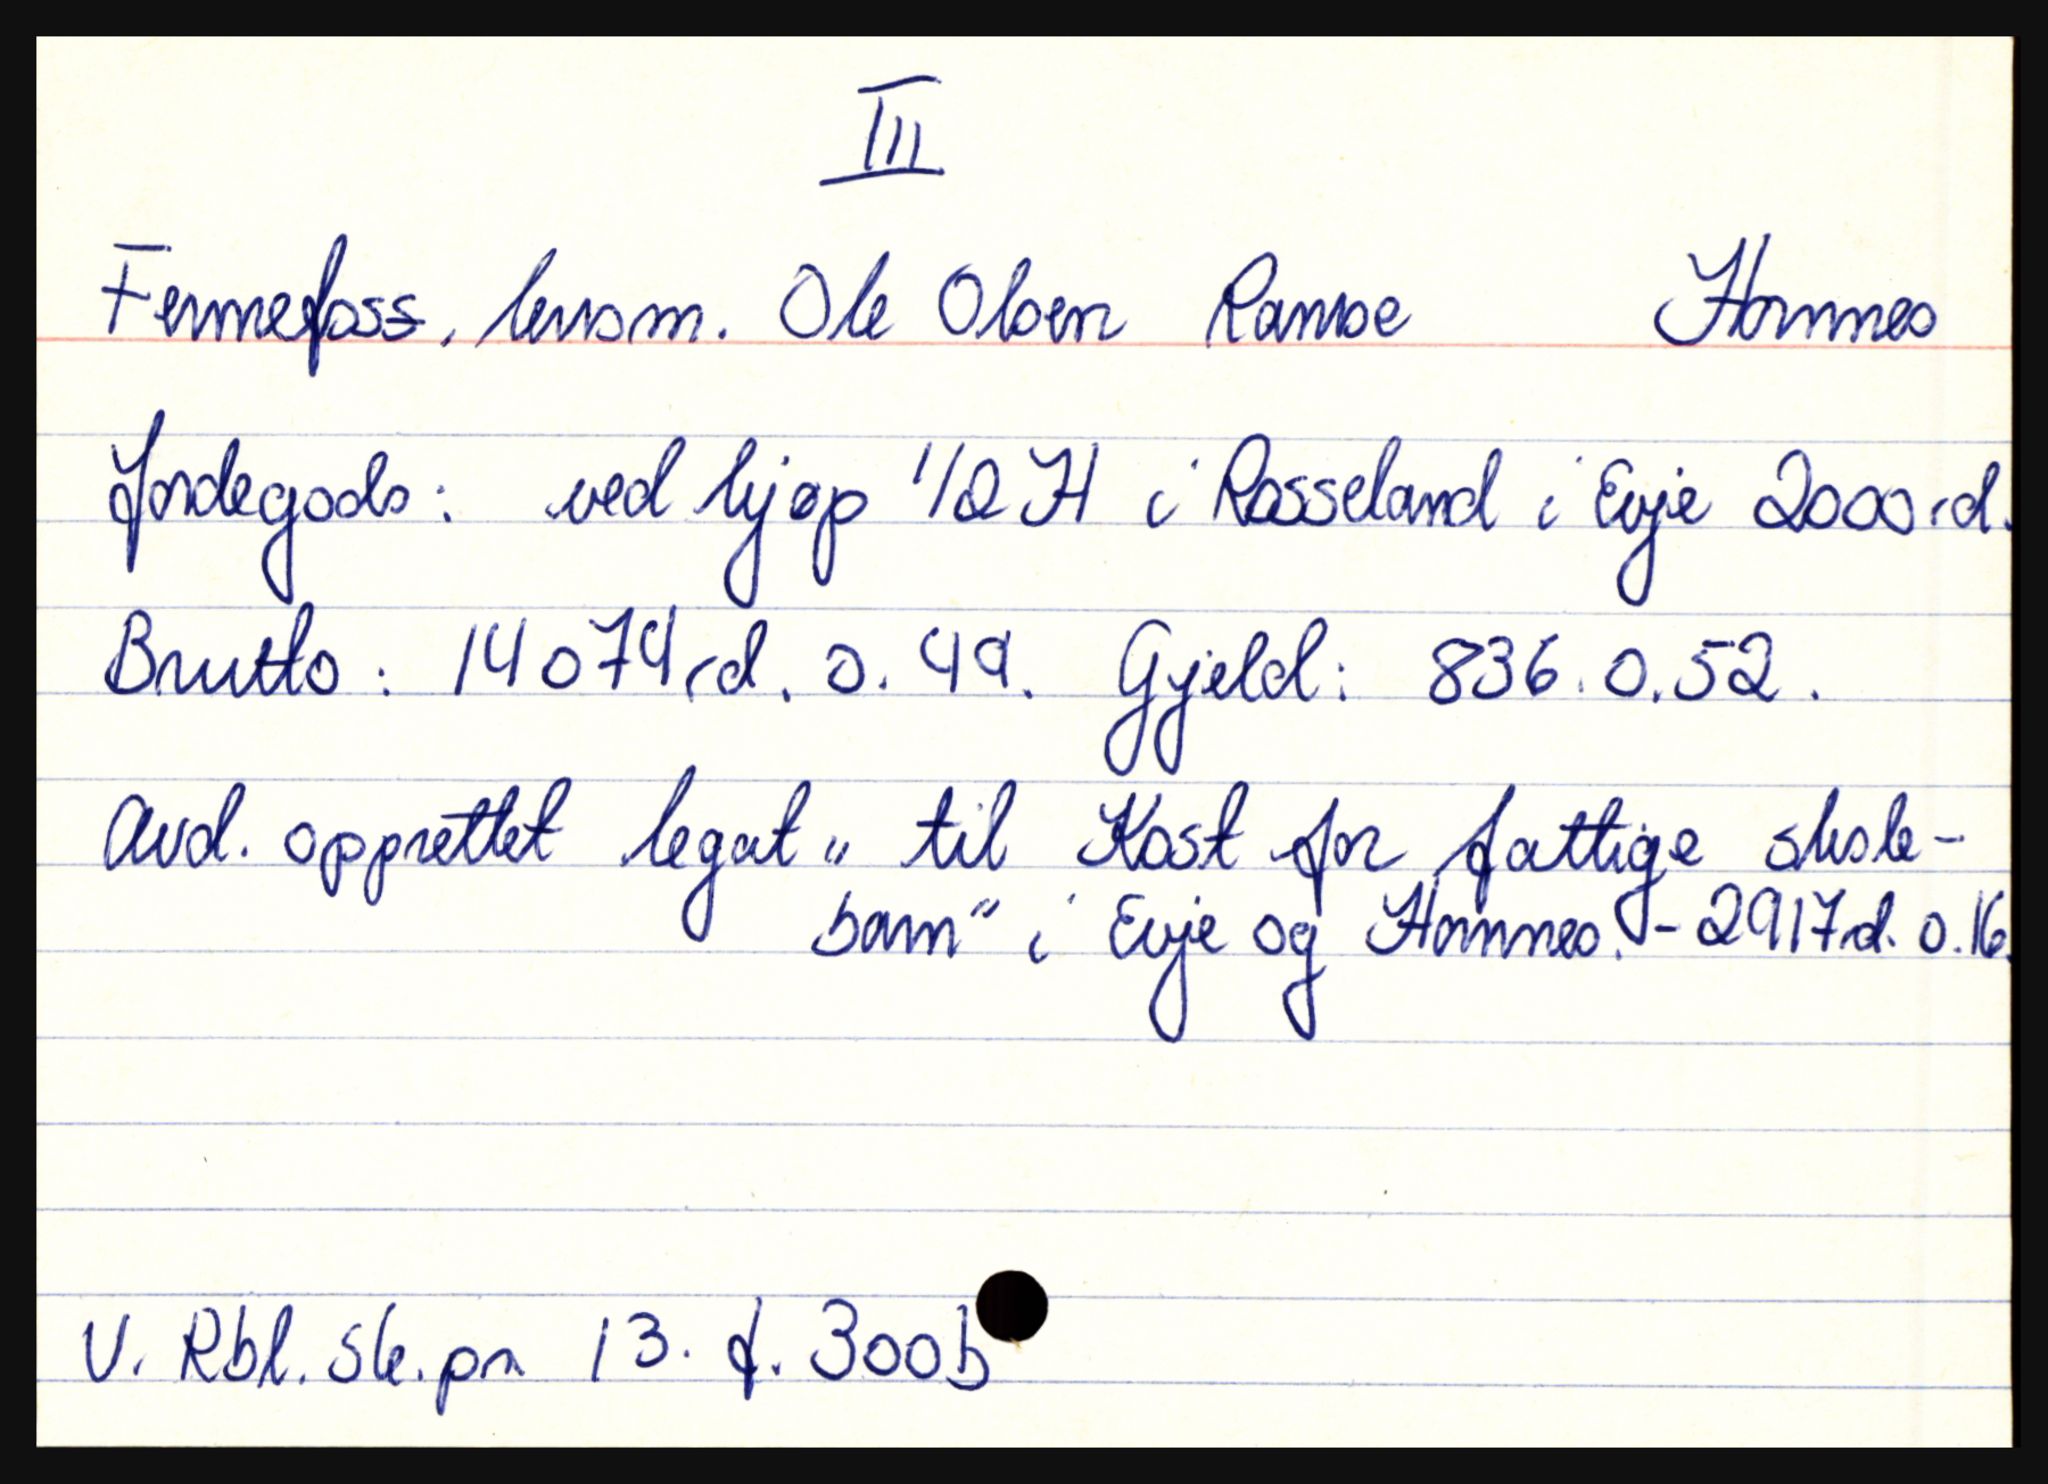 III
Fennefoss, lensm. Ole Olsen Ramse Hornnes
Jordegods: ved kjøp 1/2 H i Rosseland i Evje 2000 rd.
Brutto: 14074 rd. 0. 49. Gjeld: 836. 0. 52.
Avd. opprettet legat „til Kost for fattige skole-
barn" i Evje og Hornnes. - 2917 rd. 0. 16.
V. Rbl. sk. pr 13. f. 300b